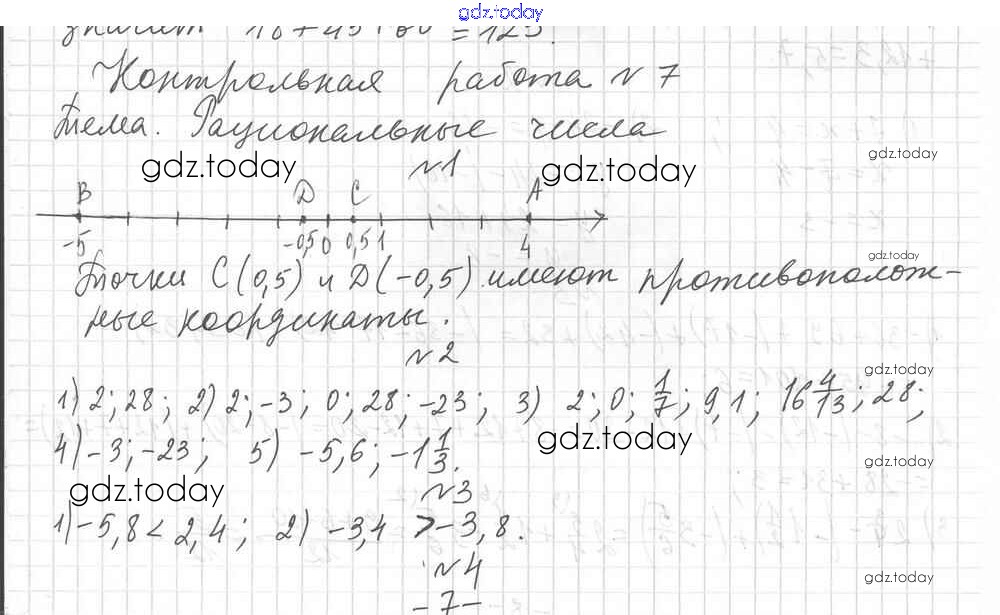 gdz.today
значит
= 125.
Контрольная работа №7
Тема. Рациональные числа
gdz.today gdz.today gdz.today
№1
B D C A
-5 -0,5 0 0,5 1 4
gdz.today
Точки C(0,5) и D(-0,5) имеют противополож-
ные координаты.
№2
gdz.today
1) 2; 28; 2) 2; -3; 0; 28; -23; 3) 2; 0; 1/7; 9,1; 16 4/13; 28;
gdz.today
4) -3; -23; 5) -5,6; -1 1/3.
gdz.today
gdz.today
№3
1) -5,8 < 2,4; 2) -3,4 > -3,8.
№4
gdz.today
-7-